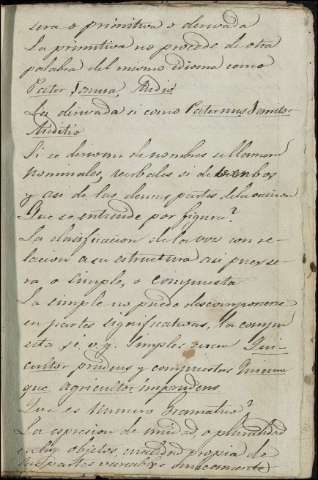 sera o primitiva o derivada
La primitiva no procede de otra
palabra del mismo idioma como
Pater
La derivada si como Paternus
Auditio
Si se derivan de nombres se llaman
nominales, verbales si de verbos
y asi de las demas partes de la oracion
Que se entiende por figura?
La clasificacion de la voz con re-
lacion a su estructura asi pues se-
ra o simple, o compuesta
La simple no puede descomponerse
en partes significativas, la compu-
esta si, v. g. simples
cultor prudens y compuestas
que agricultor imprudens
Que es numero gramatical?
La espresion de unidad o pluralidad
objetos, cualidad propia de
las partes variables